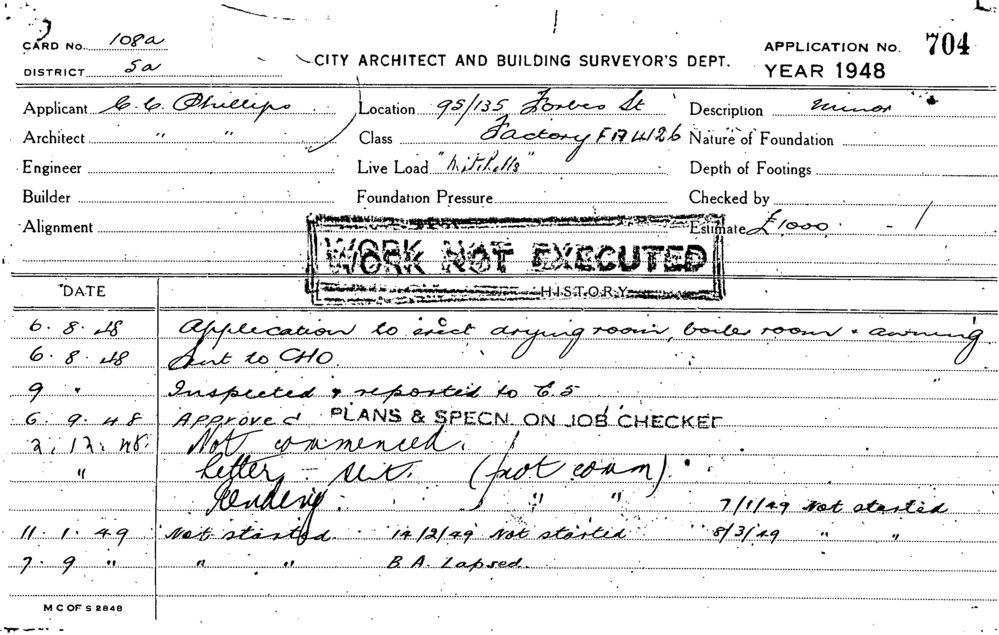 CARD No. 108a
DISTRICT 5a
CITY ARCHITECT AND BUILDING SURVEYOR'S DEPT.
APPLICATION No. 704
YEAR 1948
Applicant C. C. Phillips Location 95/135 Forbes St Description Minor
Architect " " Class Factory FA 4126 Nature of Foundation
Engineer Live Load "Mitchells" Depth of Footings
Builder Foundation Pressure Checked by
Alignment Estimate £1000
WORK NOT EXECUTED
DATE HISTORY
6.8.48 Application to erect drying room, boiler room & awning
6.8.48 Sent to CHO.
9 " Inspected & reported to C.S
6.9.48 Approved PLANS & SPECN. ON JOB CHECKED
2.12.48. Not commenced.
" Letter sent. (not comm).
Pending. " " 7/1/49 Not started
11.1.49 Not started. 14/2/49 Not started 8/3/49 " "
7.9 " " " B.A. Lapsed.
M C OF S 2848